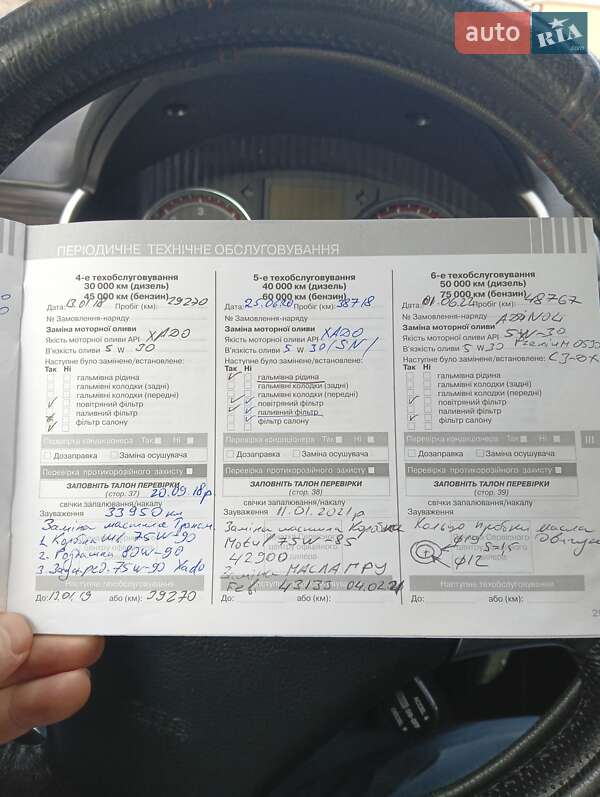 auto RIA.com
ПЕРІОДИЧНЕ ТЕХНІЧНЕ ОБСЛУГОВУВАННЯ
4-е техобслуговування
30 000 км (дизель)
45 000 км (бензин)
Дата: 13.01.18 Пробіг (км): 29270
№ Замовлення-наряду
Заміна моторної оливи
Якість моторної оливи API XADO
В'язкість оливи 5 W 30
Наступне було замінене/встановлене:
Так Ні
гальмівна рідина
гальмівні колодки (задні)
гальмівні колодки (передні)
повітряний фільтр
паливний фільтр
фільтр салону
Перевірка кондиціонера Так Ні
Дозаправка Заміна осушувача
Перевірка протикорозійного захисту
ЗАПОВНІТЬ ТАЛОН ПЕРЕВІРКИ
(стор. 37) 20.09.18р
свічки запалювання/накалу
Зауваження 33950 км
Заміна масла в
1. Коробка 75W-90
2. Роздатка 80W-90
3. Задн. ред. 75W-90 Xado
Наступне техобслуговування
До: 13.01.19 або (км): 39270
5-е техобслуговування
40 000 км (дизель)
60 000 км (бензин)
Дата: 25.06.20 Пробіг (км): 38718
№ Замовлення-наряду
Заміна моторної оливи
Якість моторної оливи API XADO
В'язкість оливи 5 W 30 /SN/
Наступне було замінене/встановлене:
Так Ні
гальмівна рідина
гальмівні колодки (задні)
гальмівні колодки (передні)
повітряний фільтр
паливний фільтр
фільтр салону
Перевірка кондиціонера Так Ні
Дозаправка Заміна осушувача
Перевірка протикорозійного захисту
ЗАПОВНІТЬ ТАЛОН ПЕРЕВІРКИ
(стор. 38)
свічки запалювання/накалу
Зауваження 11.01.2021р
Заміна масла Коробки
Motul 75W-85
42900
Заміна МАСЛА ГРУ
Febi 43135 04.02.21
Наступне техобслуговування
До: або (км):
6-е техобслуговування
50 000 км (дизель)
75 000 км (бензин)
Дата: 01.06.24 Пробіг (км): 48767
№ Замовлення-наряду ADINOL
Заміна моторної оливи
Якість моторної оливи API 5W-30
В'язкість оливи 5 W 30
Наступне було замінене/встановлене:
Так Ні
гальмівна рідина
гальмівні колодки (задні)
гальмівні колодки (передні)
повітряний фільтр
паливний фільтр
фільтр салону
Перевірка кондиціонера Так Ні
Дозаправка Заміна осушувача
Перевірка протикорозійного захисту
ЗАПОВНІТЬ ТАЛОН ПЕРЕВІРКИ
(стор. 39)
свічки запалювання/накалу
Зауваження
Кольцо пробки масла
Ф19 S=1.5
Ф12
Наступне техобслуговування
До: або (км):
III